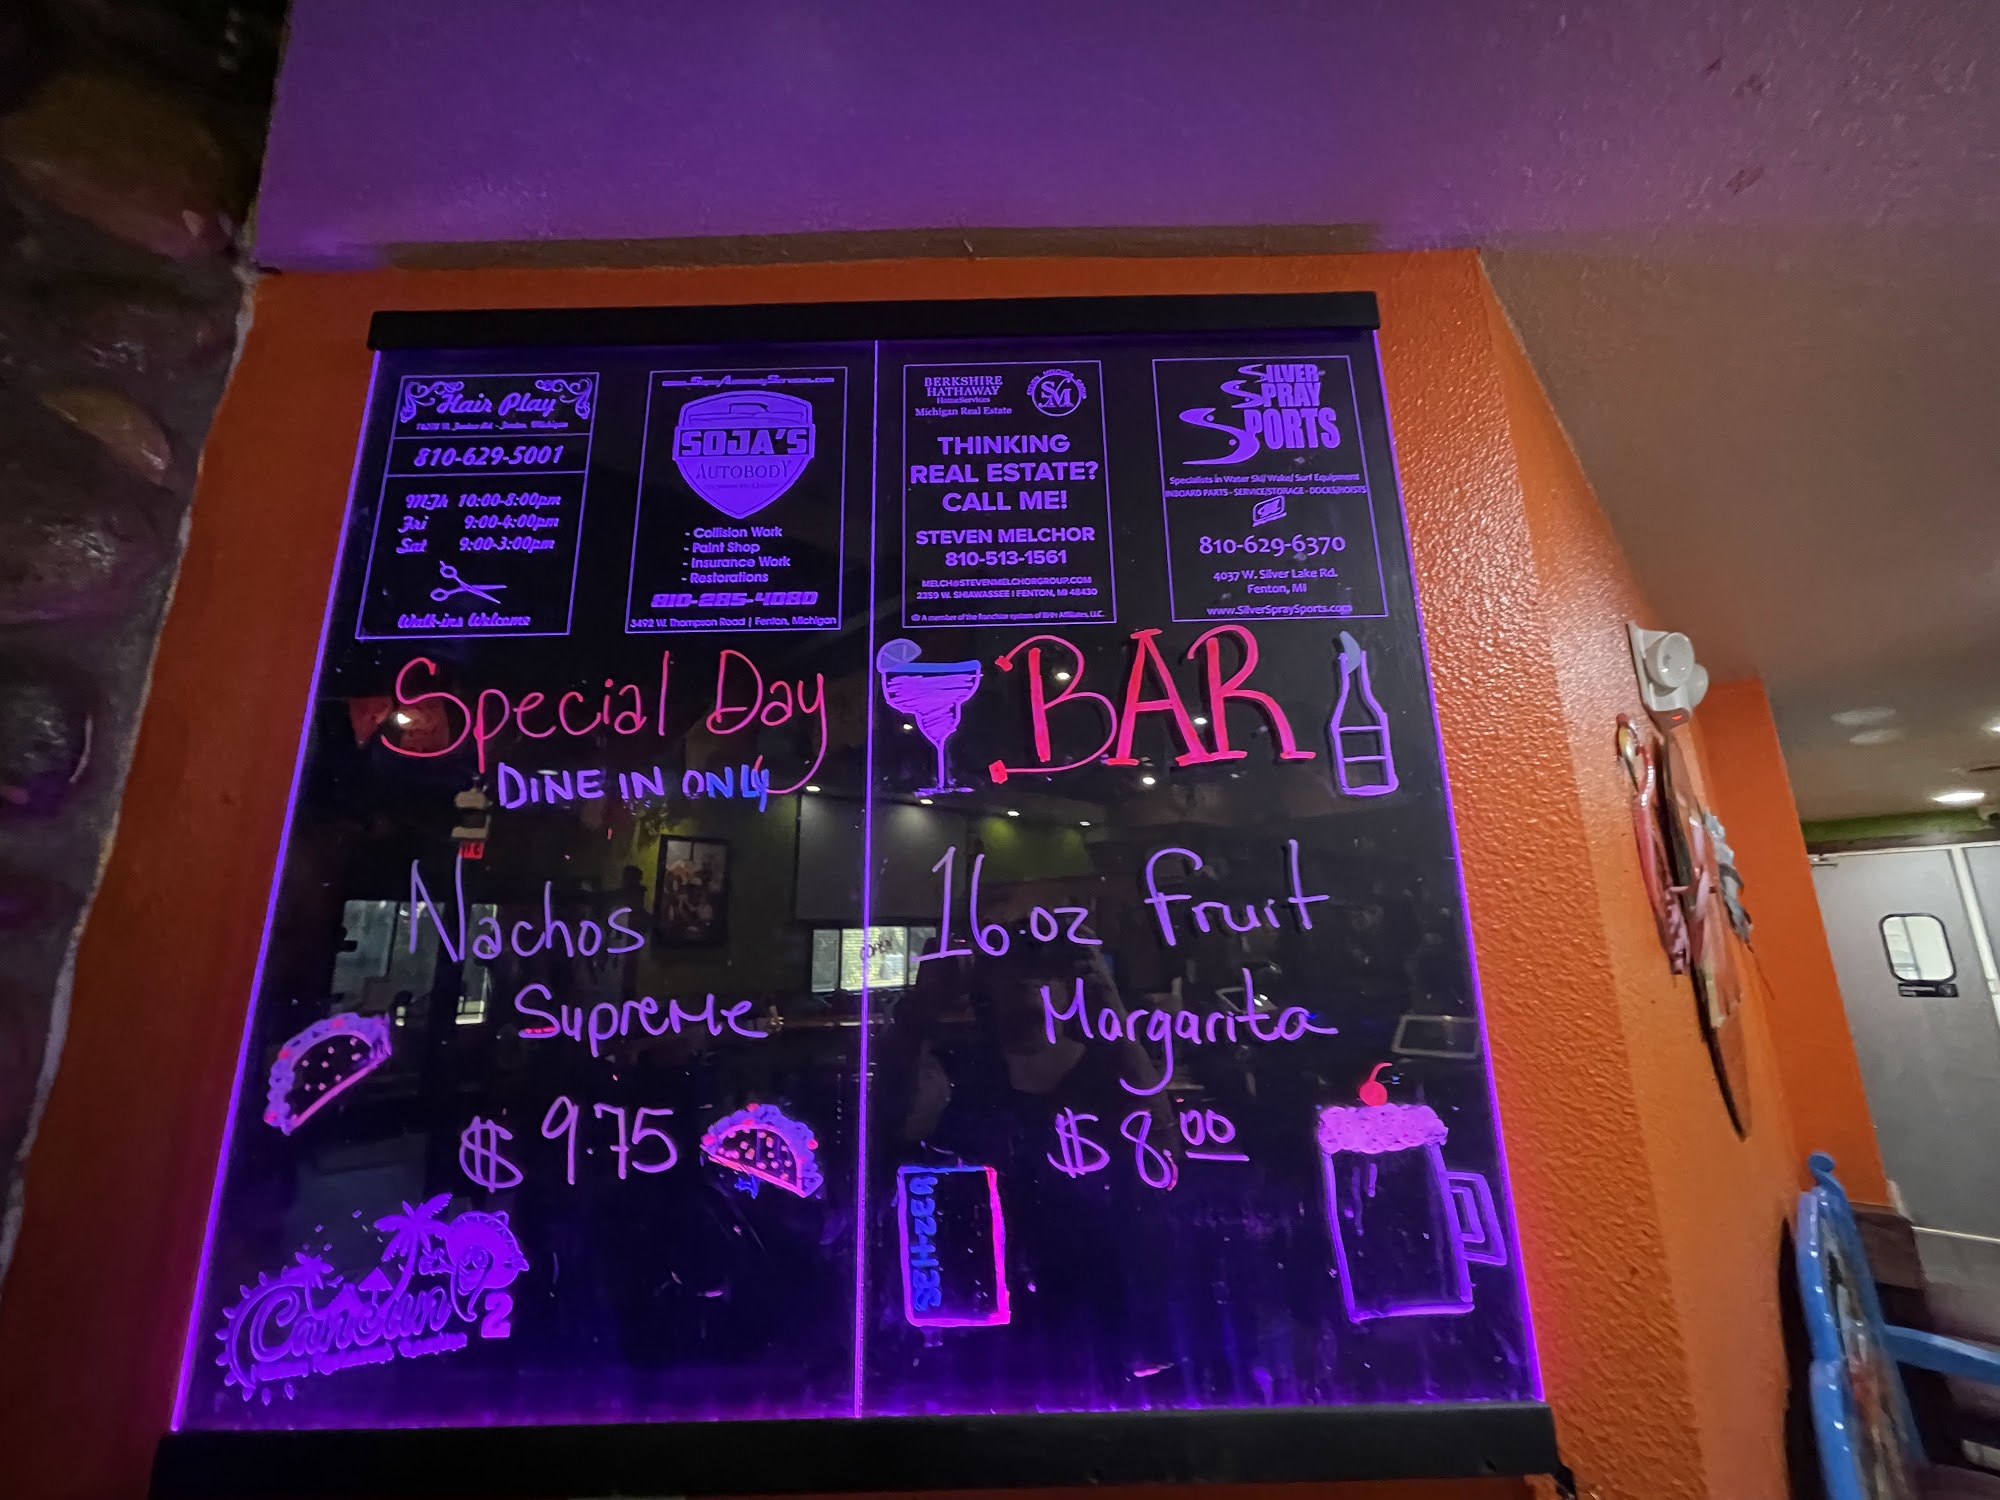 Hair Play
810-629-5001
MTh 10:00-8:00pm
Fri 9:00-4:00pm
Sat 9:00-3:00pm
Walk-ins Welcome
SOJA'S
AUTOBODY
- Collision Work
- Paint Shop
- Insurance Work
- Restorations
810-285-4080
3492 W. Thompson Road | Fenton, Michigan
BERKSHIRE
HATHAWAY
HomeServices
Michigan Real Estate
SM
THINKING
REAL ESTATE?
CALL ME!
STEVEN MELCHOR
810-513-1561
MELCH@STEVENMELCHORGROUP.COM
2359 W. SHIAWASSEE | FENTON, MI 48430
A member of the franchise system of BHH Affiliates, LLC.
SILVER
SPRAY
SPORTS
Specialists in Water Ski/ Wake/ Surf Equipment
INBOARD PARTS - SERVICE/STORAGE - DOCKS/HOISTS
810-629-6370
4037 W. Silver Lake Rd.
Fenton, MI
www.SilverSpraySports.com
Special Day
DINE IN ONLY
Nachos
Supreme
$9.75
Cancun 2
BAR
16.oz Fruit
Margarita
$8.00